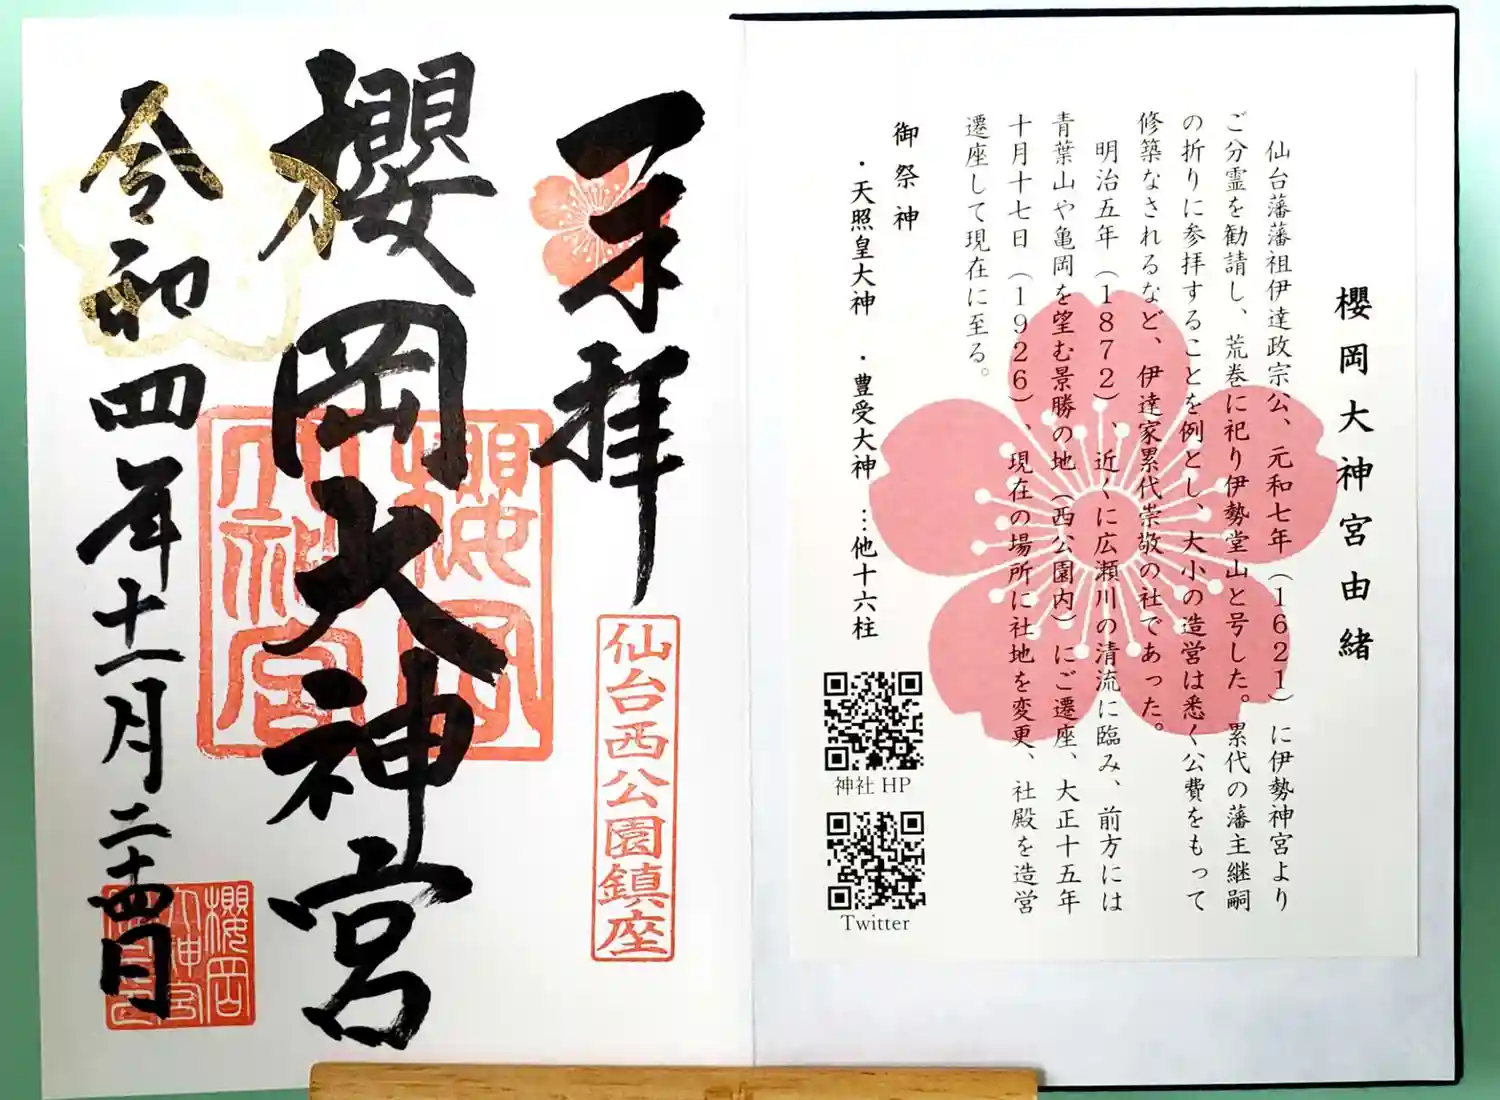 櫻岡大神宮由緒
仙台藩藩祖伊達政宗公、元和七年（１６２１）に伊勢神宮より
ご分霊を勧請し、荒巻に祀り伊勢堂山と号した。累代の藩主継嗣
の折りに参拝することを例とし、大小の造営は悉く公費をもって
修築なされるなど、伊達家累代崇敬の社であった。
明治五年（１８７２）、近くに広瀬川の清流に臨み、前方には
青葉山や亀岡を望む景勝の地（西公園内）にご遷座、大正十五年
十月十七日（１９２６）、現在の場所に社地を変更、社殿を造営
遷座して現在に至る。
御祭神
・天照皇大神　・豊受大神　…他十六柱
神社 HP
Twitter
奉拝
仙台西公園鎮座
櫻岡大神宮
櫻岡
大神宮
令和四年十一月二十四日
櫻岡
大神宮